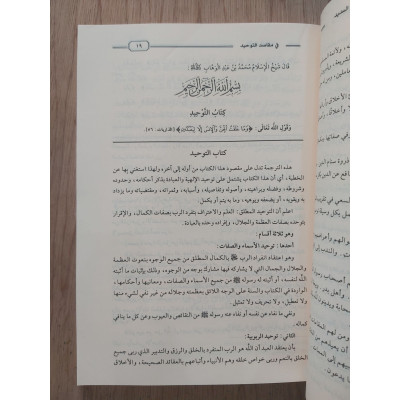 في مقاصد التوحيد
١٩
قال شيخ الإسلام محمد بن عبد الوهاب
بسم الله الرحمن الرحيم
كتاب التوحيد
وقول الله تعالى: ﴿وما خلقت الجن والإنس إلا ليعبدون﴾ [الذاريات: ٥٦].
كتاب التوحيد
هذه الترجمة تدل على مقصود هذا الكتاب من أوله إلى آخره ولهذا استغنى بها عن
الخطبة، أي أن هذا الكتاب يشتمل على توحيد الإلهية والعبادة بذكر أحكامه، وحدوده
وشروطه، وفضله وبراهينه، وأصوله وتفاصيله، وأسبابه وثمراته ومقتضياته وما يزداد
به ويقويه، أو يضعفه ويوهيه، وما به يتم أو يكمل.
اعلم أن التوحيد المطلق: العلم والاعتراف بتفرد الرب بصفات الكمال، والإقرار
بتوحده بصفات العظمة والجلال، وإفراده وحده بالعبادة.
وهو ثلاثة أقسام:
أحدها: توحيد الأسماء والصفات:
وهو اعتقاد انفراد الرب بالكمال المطلق من جميع الوجوه بنعوت العظمة
والجلال والجمال التي لا يشاركه فيها مشارك بوجه من الوجوه، وذلك بإثبات ما أثبته
الله لنفسه، أو أثبته له رسوله ﷺ من جميع الأسماء والصفات، ومعانيها وأحكامها،
الواردة في الكتاب والسنة على الوجه اللائق بعظمته وجلاله من غير نفي لشيء منها
ولا تعطيل، ولا تحريف ولا تمثيل.
ونفي ما نفاه عن نفسه أو نفاه عنه رسوله ﷺ من النقائص والعيوب وعن كل ما ينافي
كماله.
الثاني: توحيد الربوبية:
بأن يعتقد العبد أن الله هو الرب المتفرد بالخلق والرزق والتدبير الذي ربى جميع
الخلق بالنعم وربى خواص خلقه وهم الأنبياء وأتباعهم بالعقائد الصحيحة، والأخلاق